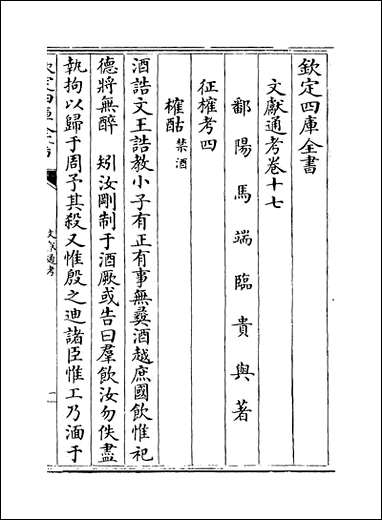 欽定四庫全書
文獻通考卷十七
鄱陽馬端臨貴與著
征榷考四
榷酤禁酒
酒誥文王誥教小子有正有事無彞酒越庶國飲惟祀
德將無醉 矧汝剛制于酒厥或告曰羣飲汝勿佚盡
執拘以歸于周予其殺又惟殷之迪諸臣惟工乃湎于
欽定四庫全書
文獻通考